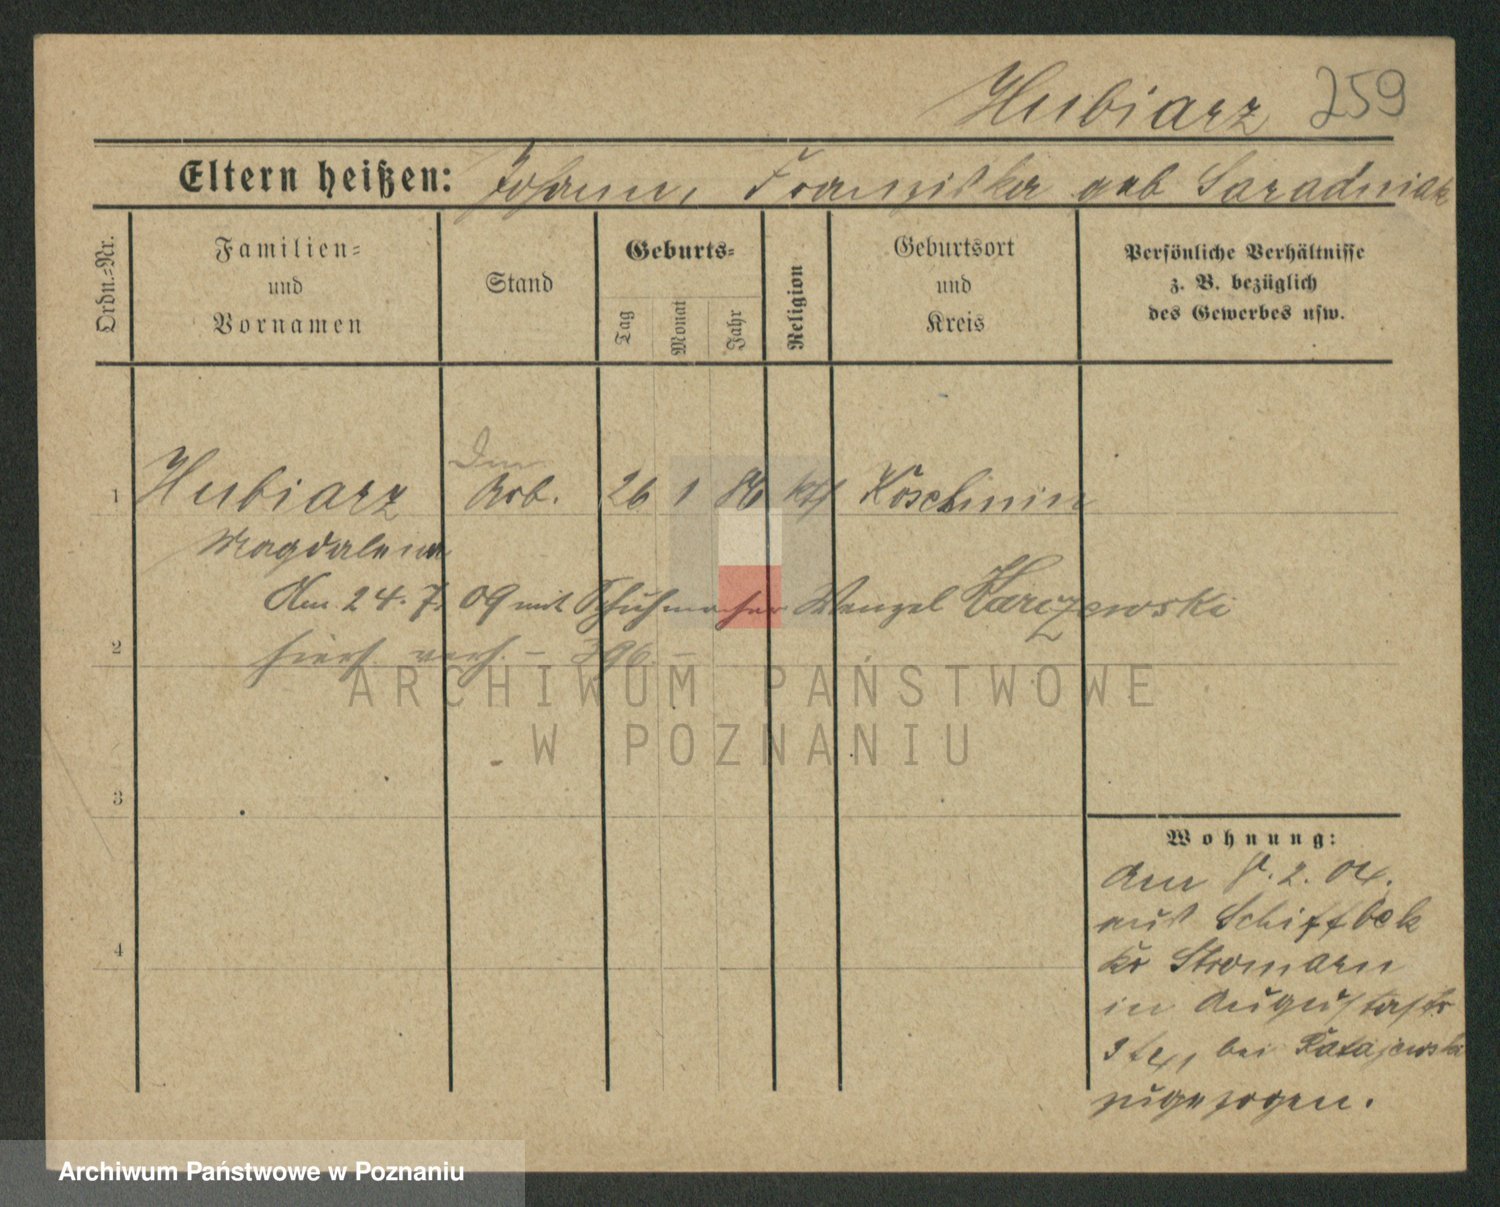 Hubiarz 259
Eltern heißen: Johann, Franziska geb Saradniak
Ordn.=Nr.
Familien=
und
Vornamen
Stand
Geburts=
Tag
Monat
Jahr
Religion
Geburtsort
und
Kreis
Persönliche Verhältnisse
z. B. bezüglich
des Gewerbes usw.
1 Hubiarz Arb. 26 1 86 kth Koschmin
Magdalena
Am 24. 7. 09 mit Schuhmacher Wenzel Karczewski
2 hiers. verh. – 396. –
3
4
Wohnung:
Am 2. 04.
aus Schiffbek
Kr Stromarn
in Augustastr
bei Ratajewski
zugezogen.
ARCHIWUM PAŃSTWOWE
W POZNANIU
Archiwum Państwowe w Poznaniu